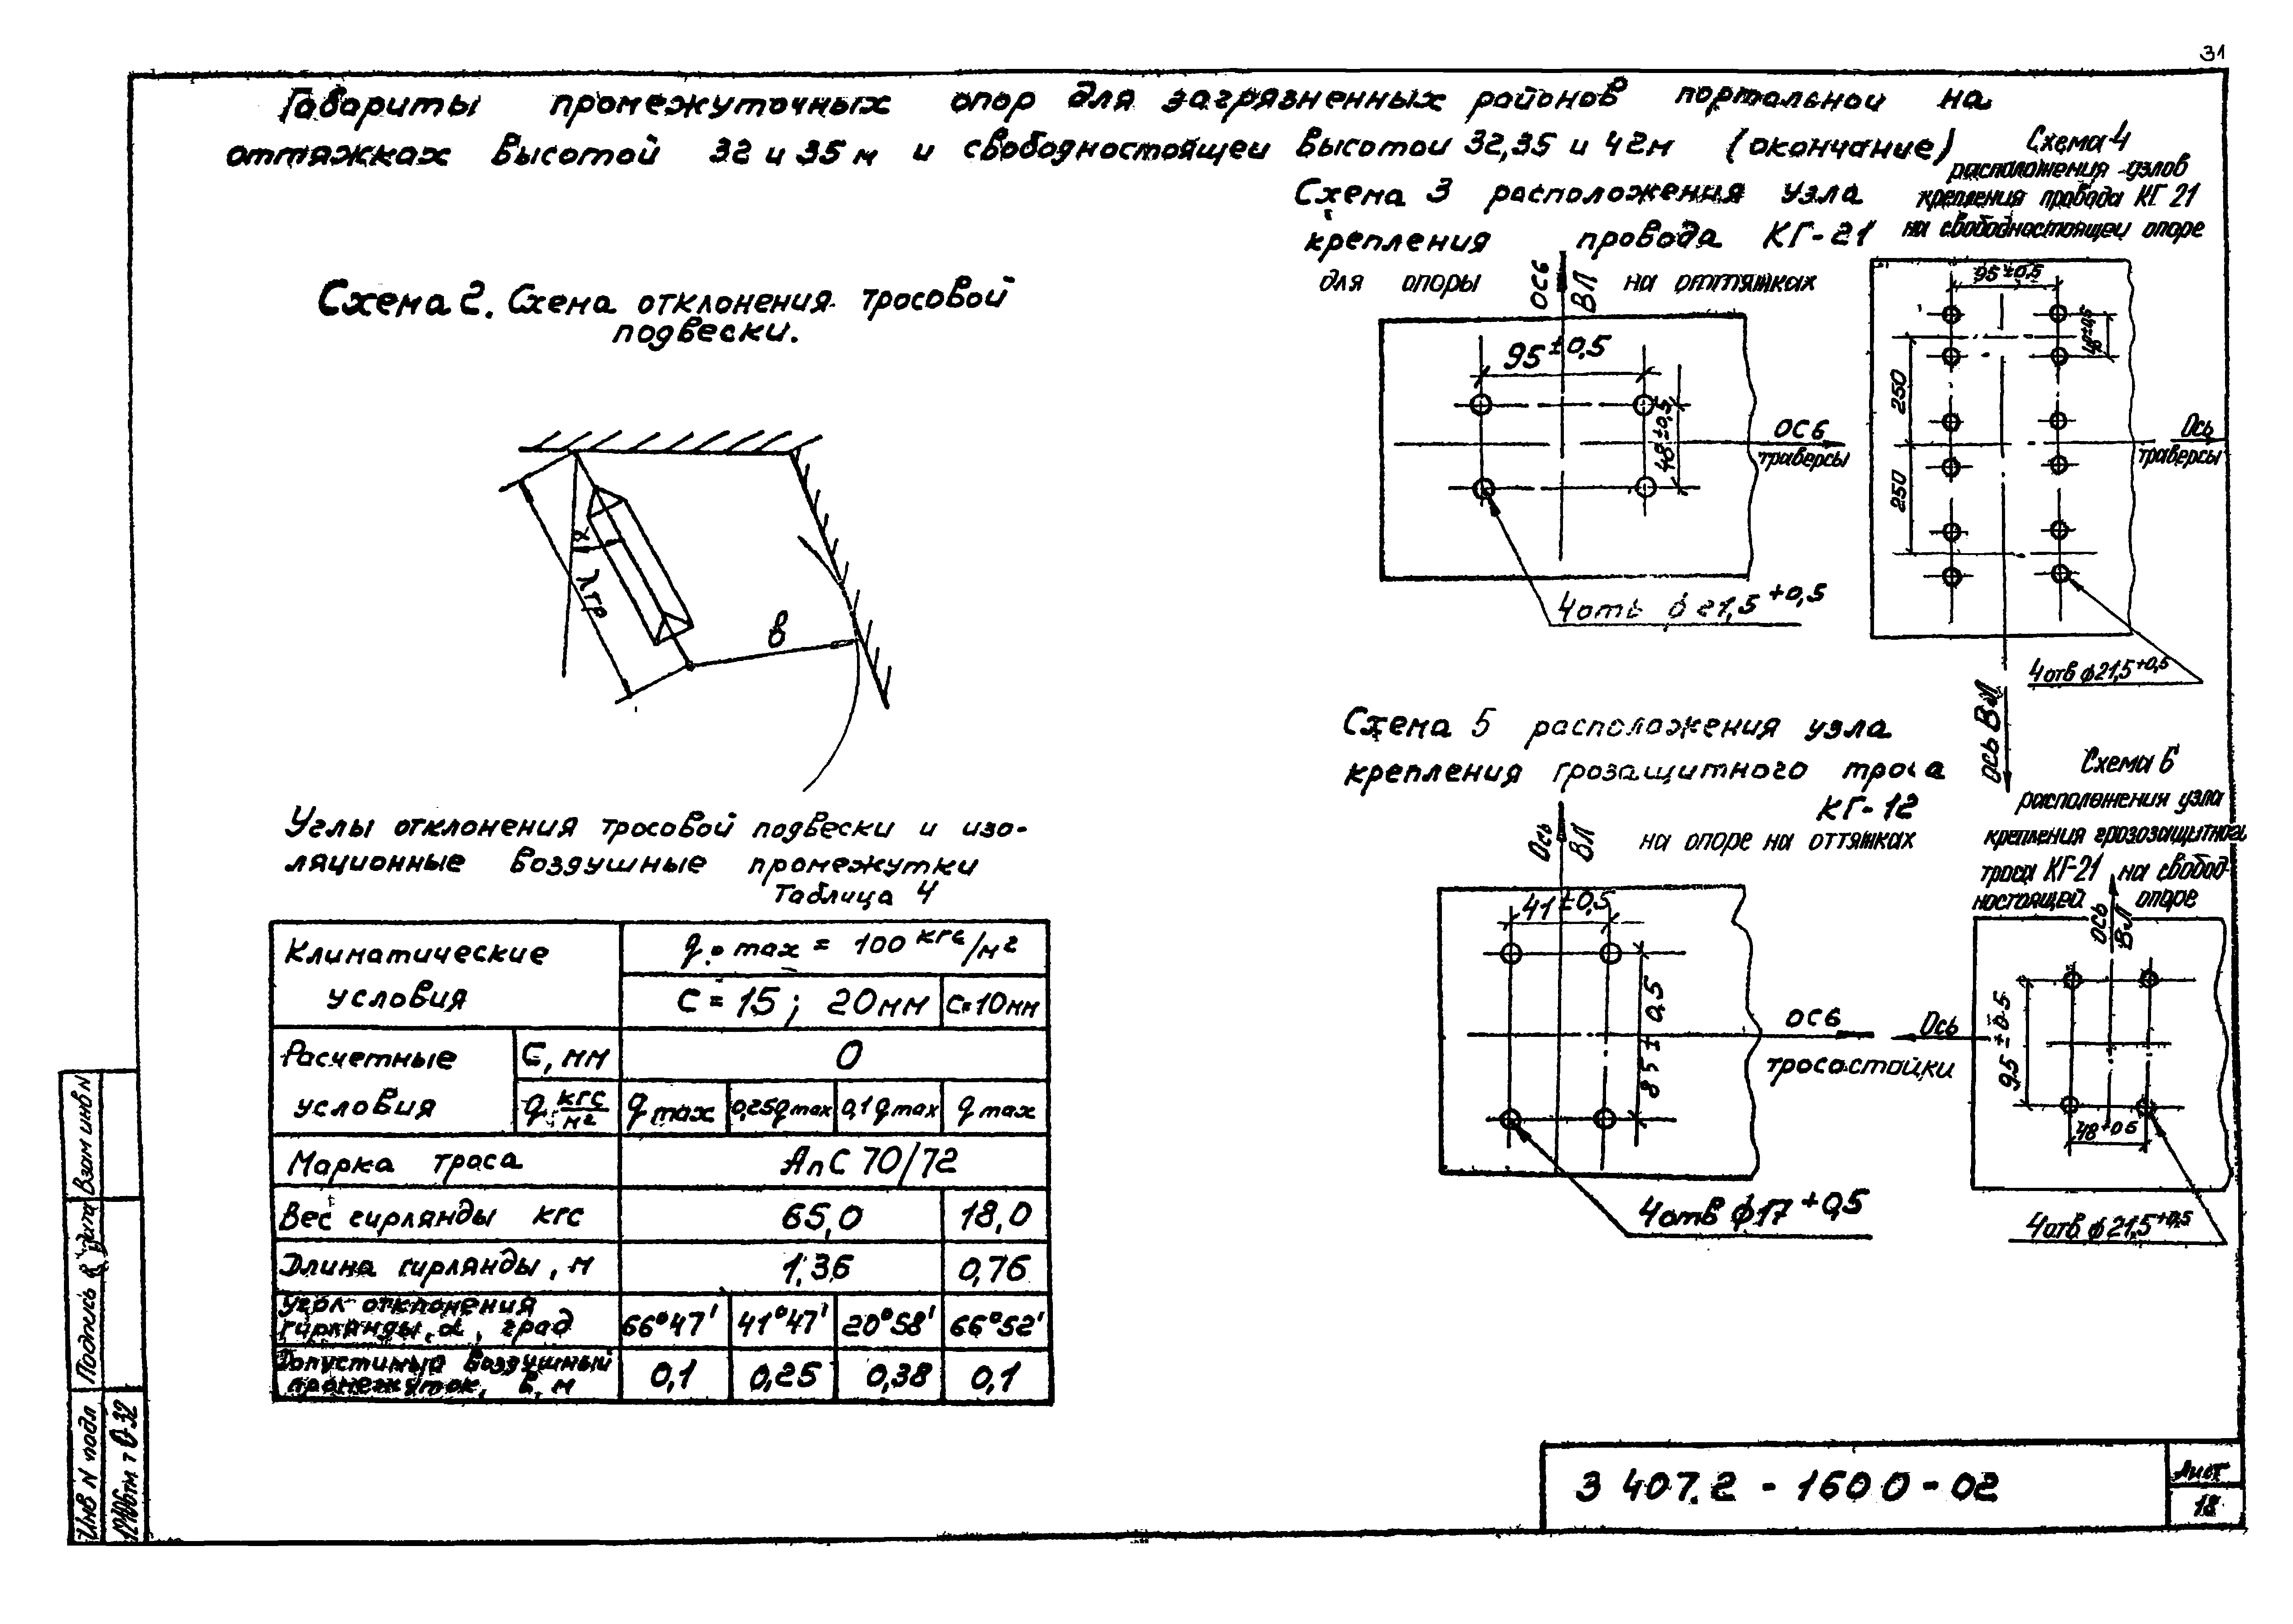 31
Габариты промежуточных опор для загрязненных районов портальной на
оттяжках высотой 32 и 35 м и свободностоящей высотой 32,35 и 42м (окончание)
Схема 2. Схема отклонения тросовой
подвески.
α
λгр
в
Углы отклонения тросовой подвески и изо-
ляционные воздушные промежутки
Таблица 4
Климатические условия
q max = 100 кгс/м²
С = 15 ; 20мм С=10мм
Расчетные условия
С, мм 0
q кгс/м² q max 0,25q max 0,1 q max q max
Марка троса АпС 70/72
Вес гирлянды кгс 65,0 18,0
Длина гирлянды, м 1,36 0,76
Угол отклонения
гирлянды, α, град 66°47' 41°47' 20°58' 66°52'
Допустимый воздушный
промежуток, в, м 0,1 0,25 0,38 0,1
Схема 3 расположения узла
крепления провода КГ-21
для опоры на оттяжках
ось ВЛ
95±0,5
48±0,5
ось
траверсы
4 отв ф 21,5 +0,5
Схема 4
расположения узлов
крепления провода КГ 21
на свободностоящей опоре
95±0,5
48±0,5
250
250
Ось
траверсы
4 отв ф 21,5+0,5
ось ВЛ
Схема 5 расположения узла
крепления грозащитного троса
КГ-12
на опоре на оттяжках
Ось ВЛ
41±0,5
85±0,5
ось
тросостойки
4 отв ф 17 +0,5
Схема 6
расположения узла
крепления грозозащитного
троса КГ-21 на свобод-
ностоящей опоре
ось ВЛ
Ось
95±0.5
48±0.5
4 отв ф 21,5+0,5
Взам инв N
Подпись и дата
Инв N подл
3 407.2 - 160 0 - 02
Лист
18